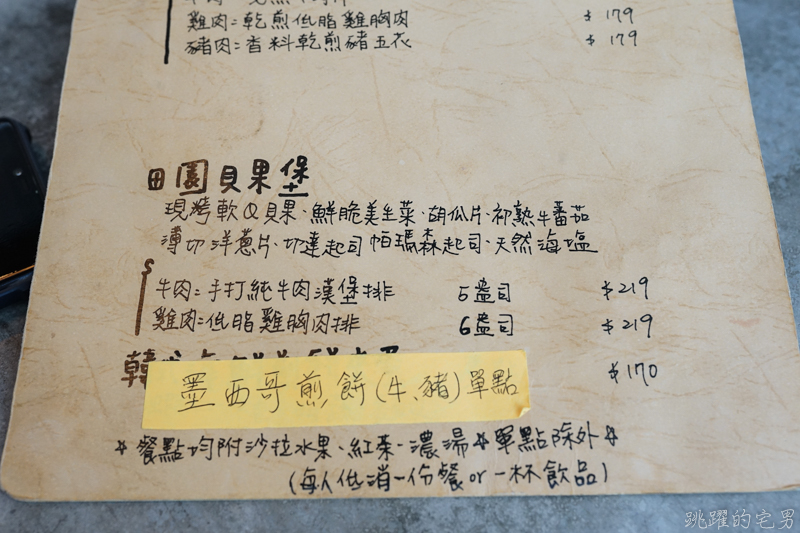 雞肉：乾煎低脂雞胸肉 $179
豬肉：香料乾煎豬五花 $179
田園貝果堡
現烤軟Q貝果、鮮脆美生菜、胡瓜片、初熟牛番茄
薄切洋蔥片、切達起司帕瑪森起司、天然海塩
牛肉：手打純牛肉漢堡排 5盎司 $219
雞肉：低脂雞胸肉排 6盎司 $219
韓 $170
墨西哥煎餅(牛、豬)單點
餐點均附沙拉水果、紅茶、濃湯 單點除外
(每人低消一份餐or一杯飲品)
跳躍的宅男